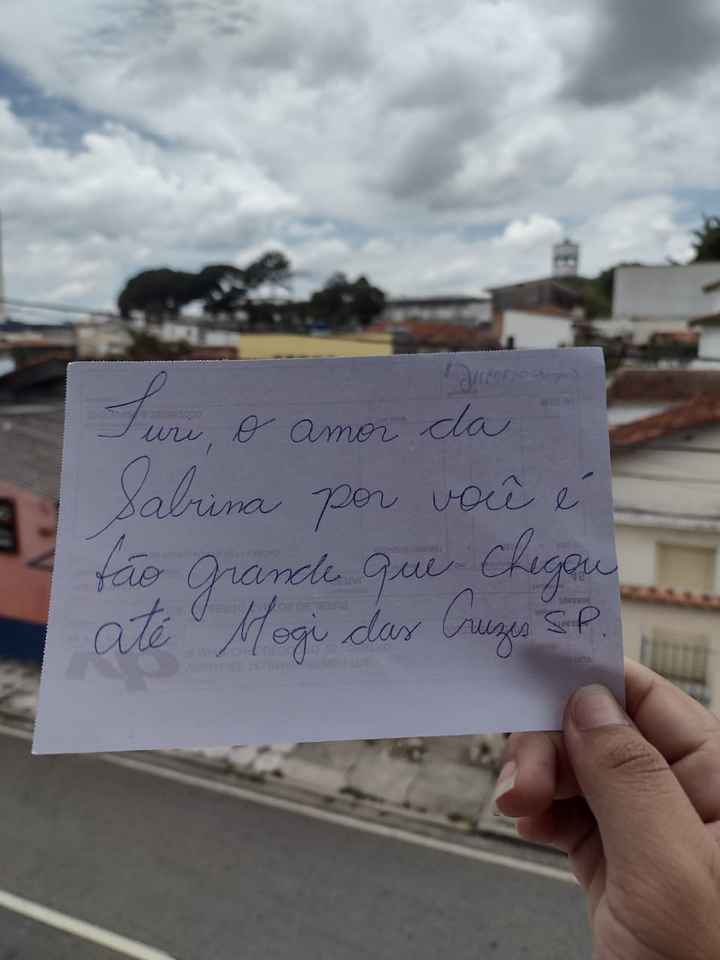 Iuri, o amor da
Sabrina por você é
tão grande que chegou
até Mogi das Cruzes SP.